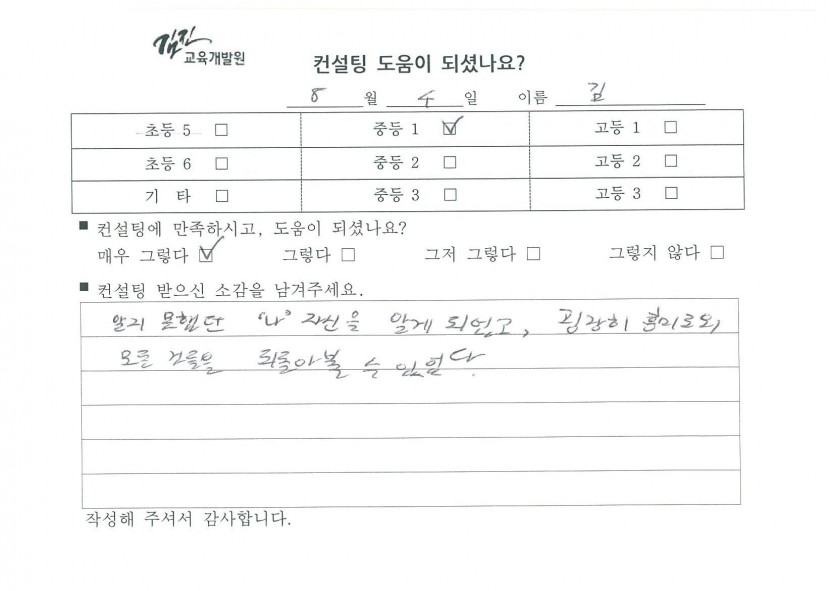 교육개발원
컨설팅 도움이 되셨나요?
8 월 4 일 이름 김
초등 5 □ 중등 1 ☑ 고등 1 □
초등 6 □ 중등 2 □ 고등 2 □
기 타 □ 중등 3 □ 고등 3 □
■ 컨설팅에 만족하시고, 도움이 되셨나요?
매우 그렇다 ☑ 그렇다 □ 그저 그렇다 □ 그렇지 않다 □
■ 컨설팅 받으신 소감을 남겨주세요.
알지 못했던 '나' 자신을 알게 되었고, 굉장히 흥미로워
모든 것들을 되돌아볼 수 있었다.
작성해 주셔서 감사합니다.